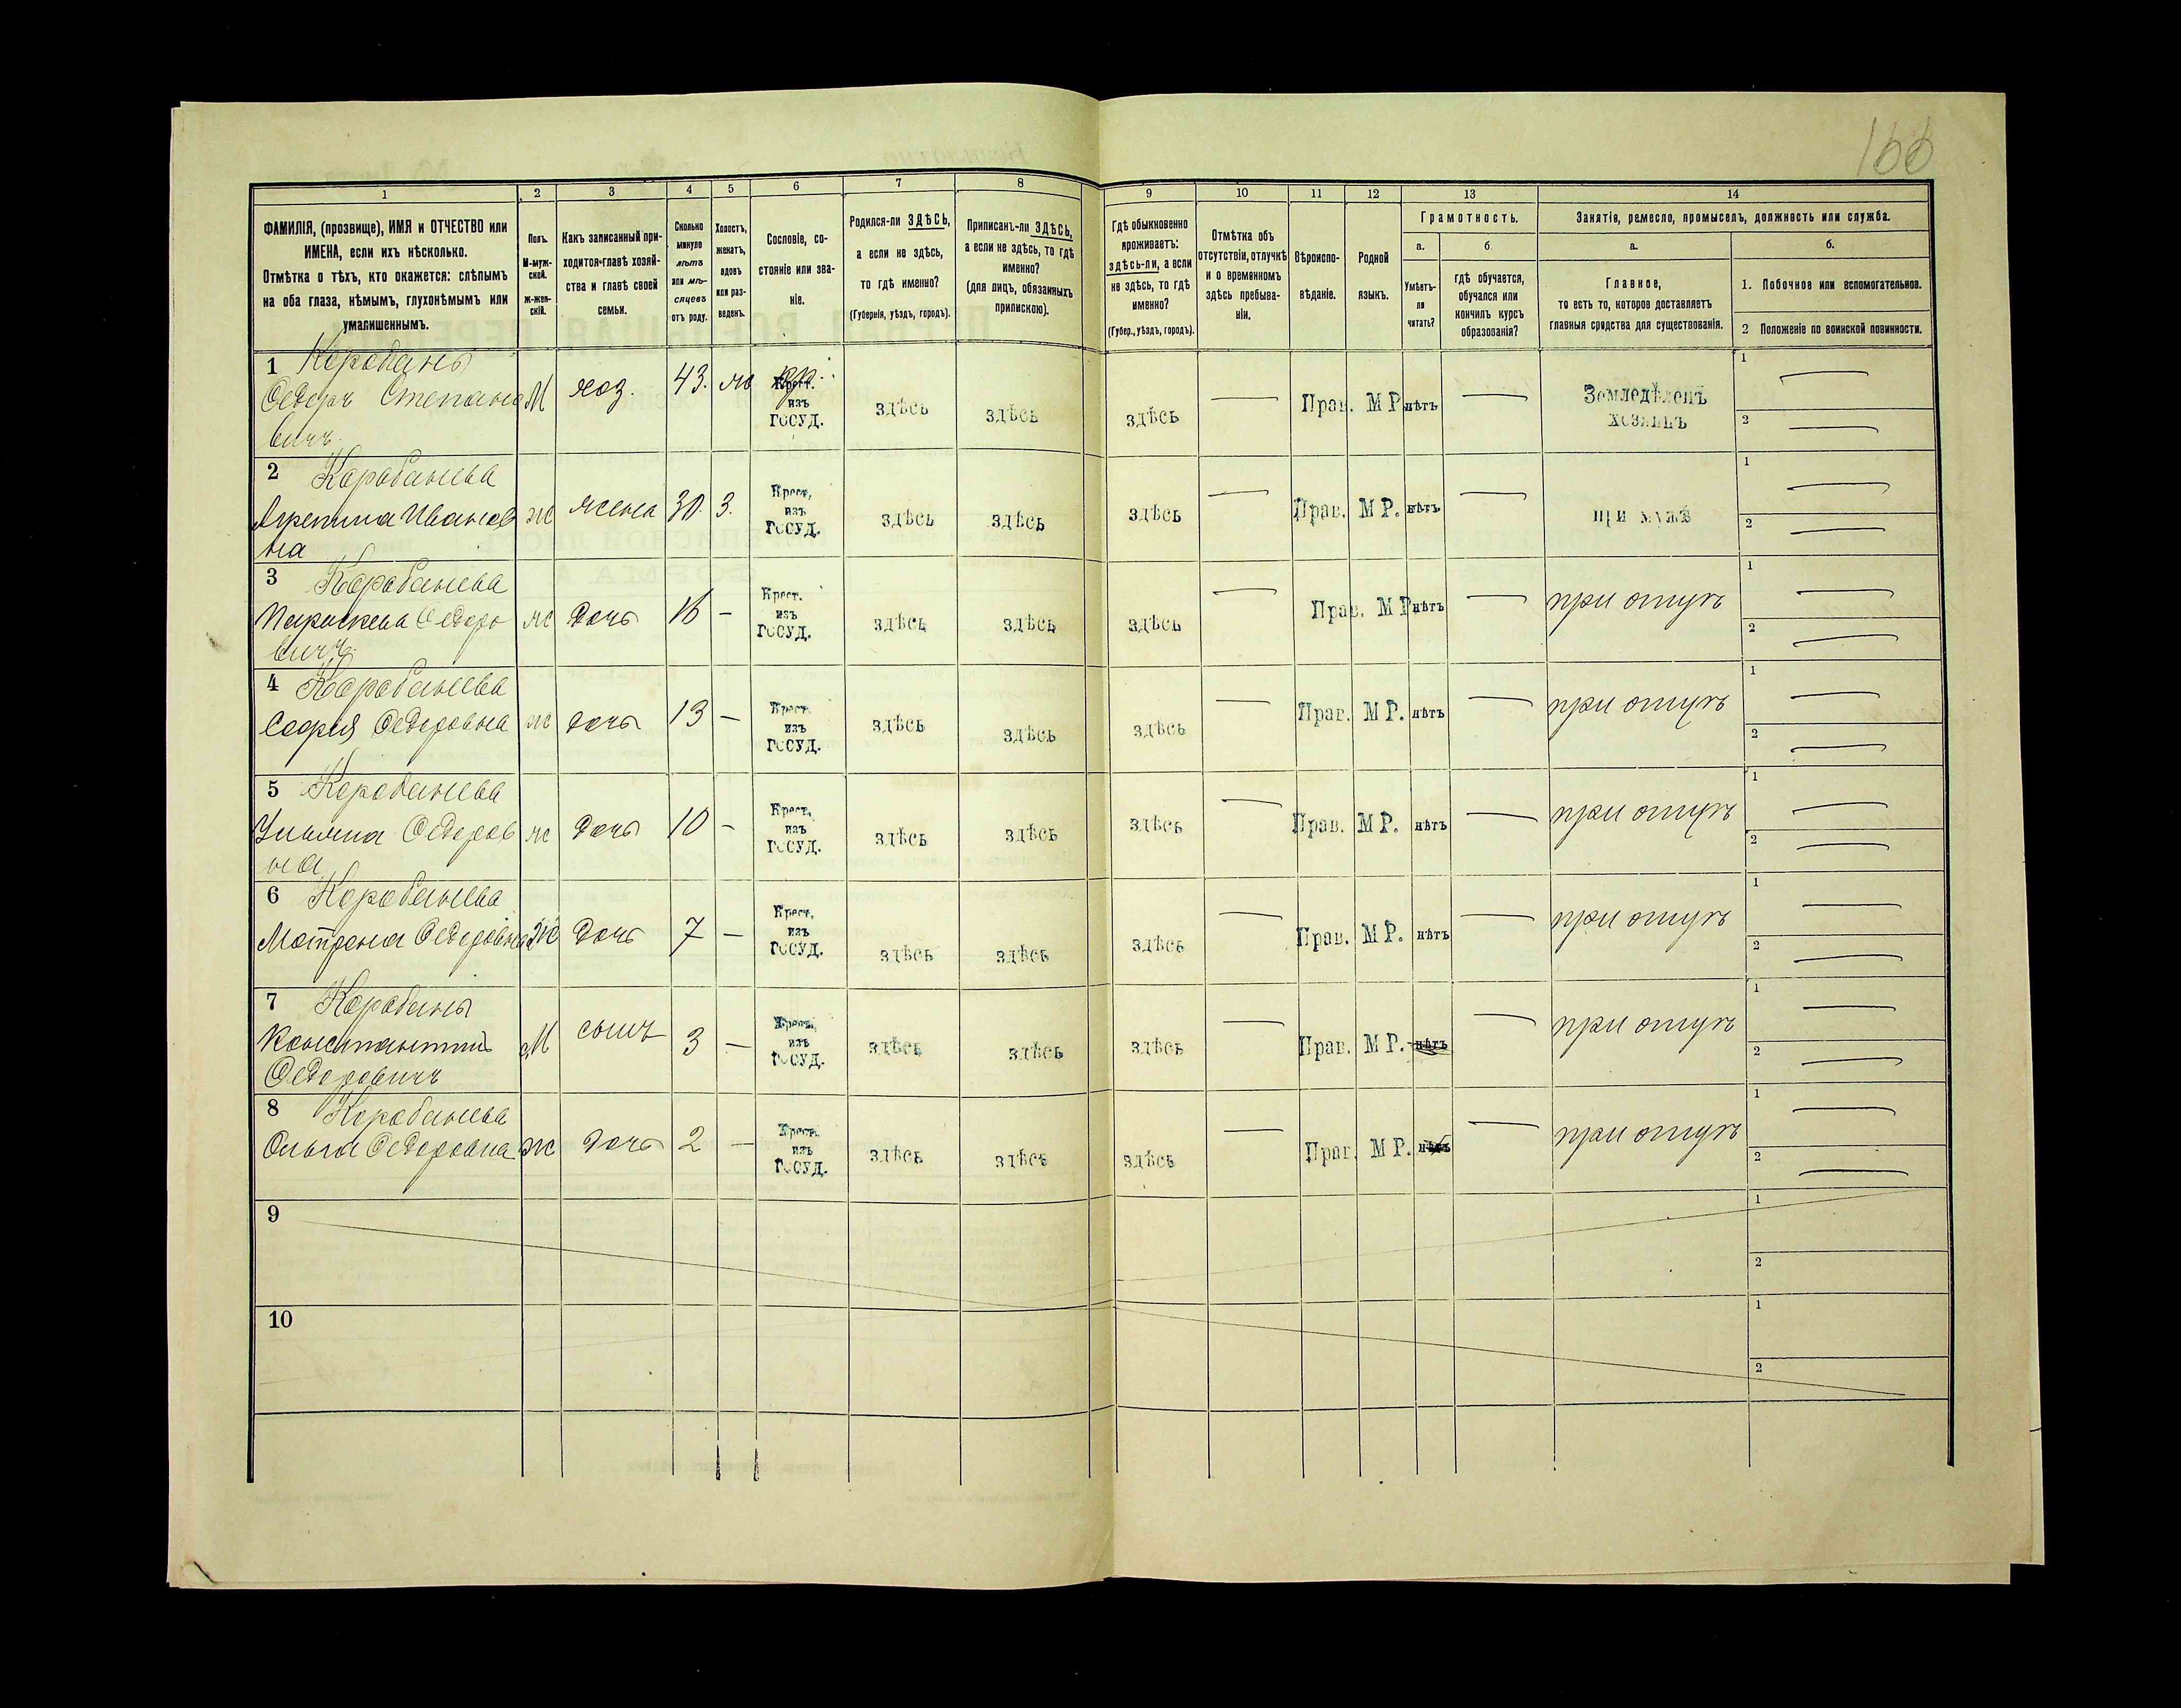 166
1 2 3 4 5 6 7 8 9 10 11 12 13 14
ФАМИЛІЯ, (прозвище), ИМЯ и ОТЧЕСТВО или
ИМЕНА, если ихъ нѣсколько.
Отмѣтка о тѣхъ, кто окажется: слѣпымъ
на оба глаза, нѣмымъ, глухонѣмымъ или
умалишеннымъ.
Полъ.
М-муж-
ской.
ж-жен-
скій.
Какъ записанный при-
ходится главѣ хозяй-
ства и главѣ своей
семьи.
Сколько
минуло
лѣтъ
или мѣ-
сяцевъ
отъ роду.
Холостъ,
женатъ,
вдовъ
или раз-
веденъ.
Сословіе, со-
стояніе или зва-
ніе.
Родился-ли ЗДѢСЬ,
а если не здѣсь,
то гдѣ именно?
(Губернія, уѣздъ, городъ).
Приписанъ-ли ЗДѢСЬ,
а если не здѣсь, то гдѣ
именно?
(для лицъ, обязанныхъ
припискою).
Гдѣ обыкновенно
проживаетъ:
здѣсь-ли, а если
не здѣсь, то гдѣ
именно?
(Губер., уѣздъ, городъ).
Отмѣтка объ
отсутствіи, отлучкѣ
и о временномъ
здѣсь пребыва-
ніи.
Вѣроиспо-
вѣданіе.
Родной
языкъ.
Грамотность.
а.
Умѣетъ-
ли
читать?
б
гдѣ обучается,
обучался или
кончилъ курсъ
образованія?
Занятіе, ремесло, промыселъ, должность или служба.
а.
Главное,
то есть то, которое доставляетъ
главныя средства для существованія.
б.
1. Побочное или вспомогательное.
2 Положеніе по воинской повинности.
1 Карабань
Ѳедоръ Степано
вичъ.
М хоз. 43. Крест. изъ ГОСУД. здѣсь здѣсь здѣсь — Прав. М Р. нѣтъ — Земледѣлецъ хозяинъ 1 — 2 —
2 Карабанева
Агрепина Иванов
на
ж жена 30. З. Крест, изъ ГОСУД. здѣсь здѣсь здѣсь — Прав. М Р. нѣтъ — при мужѣ 1 — 2 —
3 Карабанева
Параскева Ѳедоро
вичъ.
ж дочь 16 — Крест. изъ ГОСУД. здѣсь здѣсь здѣсь — Прав. М Р нѣтъ — при отцѣ 1 — 2 —
4 Карабанева
Софія Ѳедоровна
ж дочь 13 — Крест. изъ ГОСУД. здѣсь здѣсь здѣсь — Прав. М Р. нѣтъ — при отцѣ 1 — 2 —
5 Карабанева
Ульяна Ѳедоров
на
ж дочь 10 — Крест, изъ ГОСУД. здѣсь здѣсь здѣсь — Прав. М Р. нѣтъ — при отцѣ 1 — 2 —
6 Карабанева
Мотрона Ѳедоровна
ж дочь 7 — Крест, изъ ГОСУД. здѣсь здѣсь здѣсь — Прав. М Р. нѣтъ — при отцѣ 1 — 2 —
7 Карабань
Константинъ
Ѳедоровичъ
М сынъ 3 — Крест, изъ ГОСУД. здѣсь здѣсь здѣсь — Прав. М Р. нѣтъ — при отцѣ 1 — 2 —
8 Карабанева
Ольга Ѳедоровна
ж дочь 2 — Крест. изъ ГОСУД. здѣсь здѣсь здѣсь — Прав. М Р. нѣтъ — при отцѣ 1 — 2 —
9 1 2
10 1 2